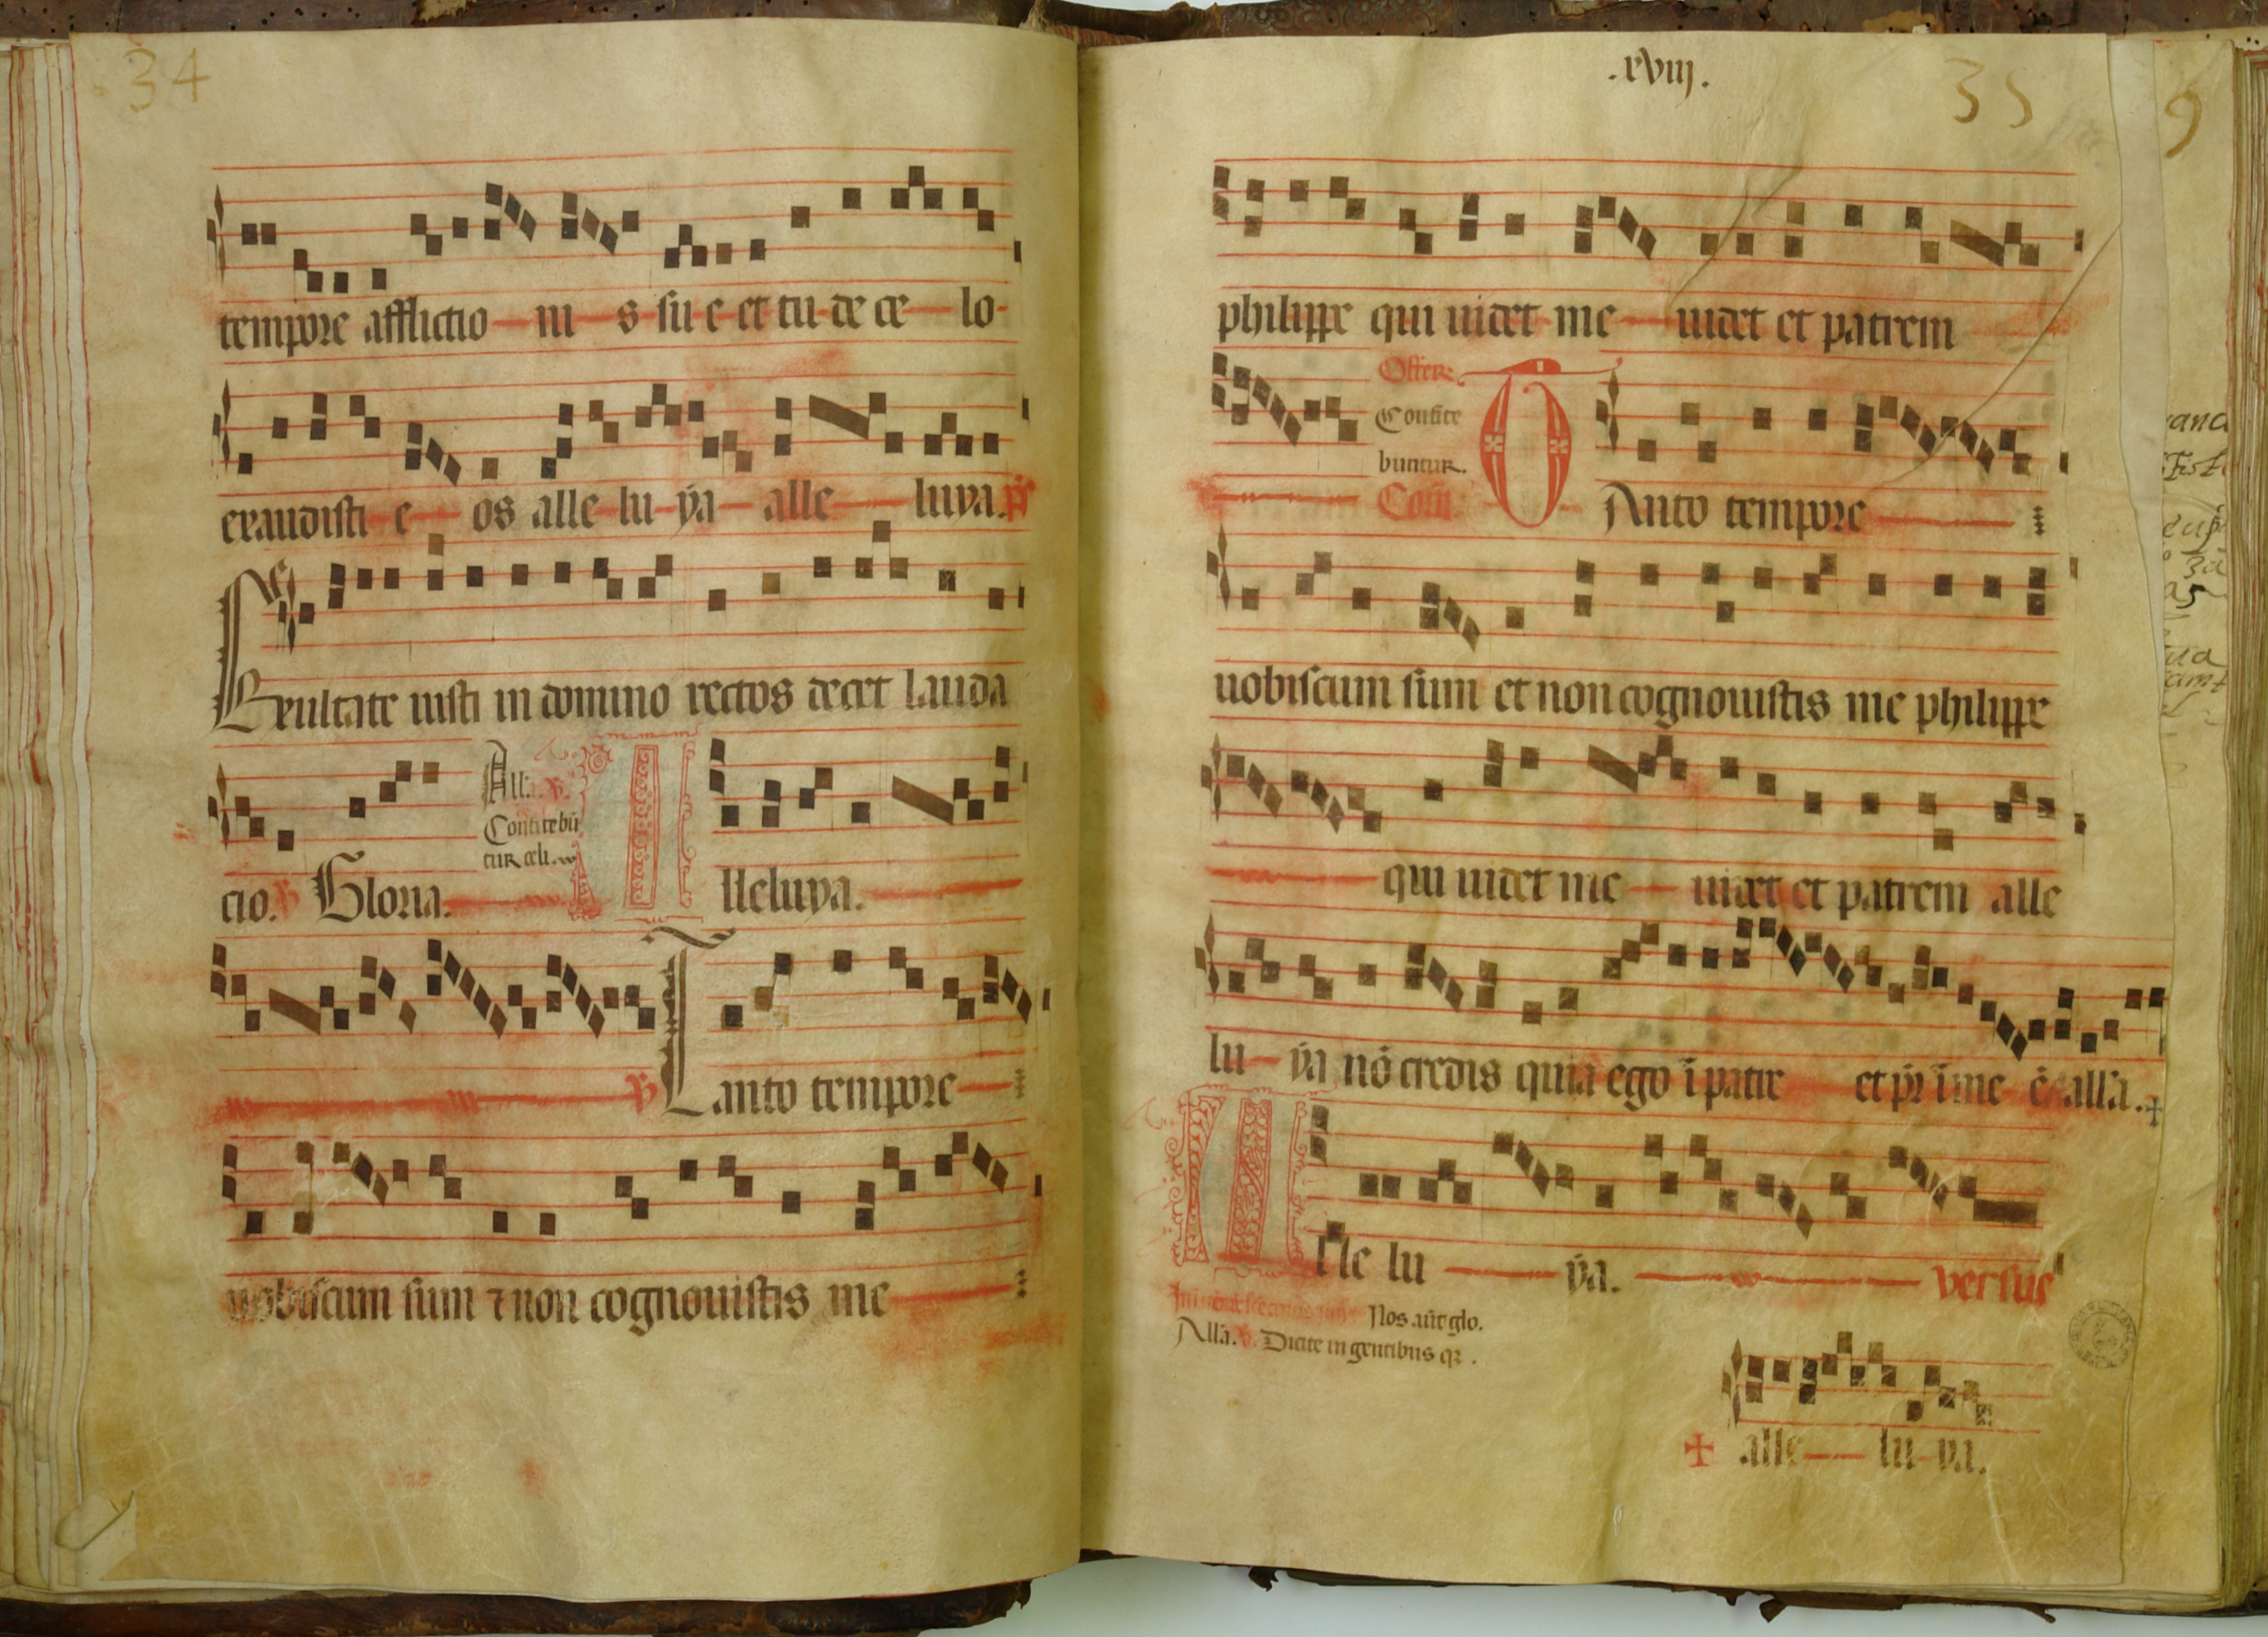 34
tempore afflictio ni s su e et tu de ce lo
exaudisti e os alle lu ẏa alle luya. ps
Exultate iusti in domino rectos decet lauda
Alla. V.
Confitebũ
tur celi.
cio. V Gloria. Alleluya.
V Tanto tempore
uobiscum sum ⁊ non cognouistis me
.xviij.
35
philippe qui uidet me uidet et patrem
Offer.
Confite
buntur.
Com̃. TAnto tempore
uobiscum sum et non cognouistis me philippe
qui uidet me uidet et patrem alle
lu ẏa nõ credis quia ego ĩ patre et pr̃ ĩ me ẽ alla. +
Alle lu ẏa. versus
Nos aũt glo.
Alla. V. Dicite in gentibus qz.
+ alle lu ya.
9